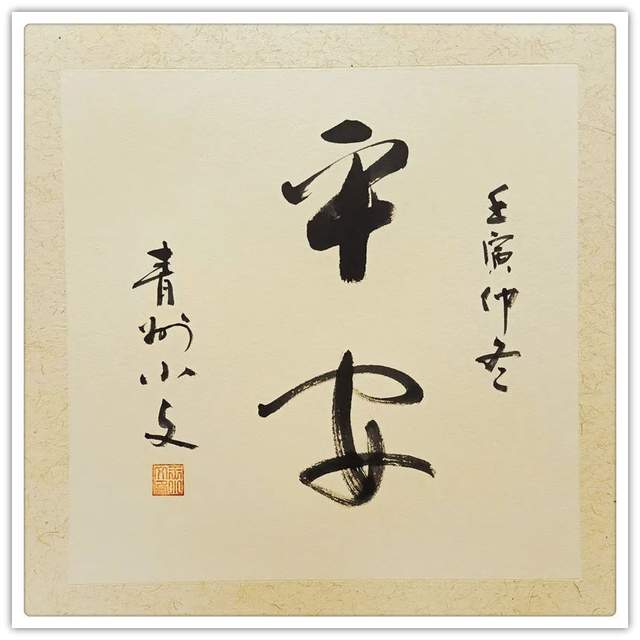 壬寅仲冬
平安
青州小文